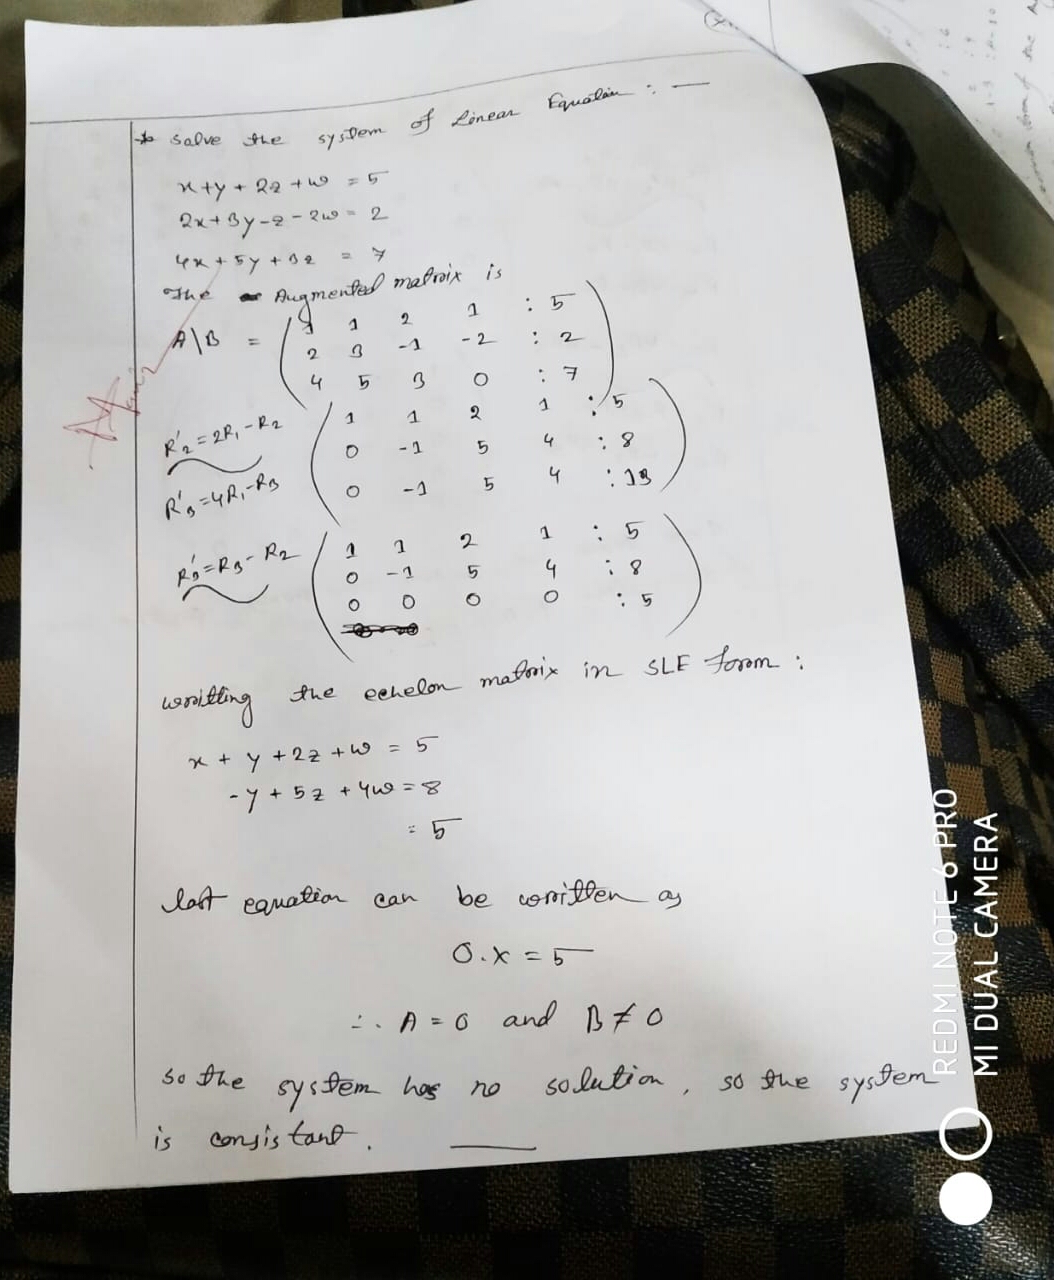 * Solve the system of Linear Equation : —
x+y+2z+w = 5
2x+3y-z-2w = 2
4x+5y+3z = 7
The Augmented matrix is
A\B = ( 1 1 2 1 : 5
2 3 -1 -2 : 2
4 5 3 0 : 7 )
R'2=2R1-R2
R'3=4R1-R3
( 1 1 2 1 : 5
0 -1 5 4 : 8
0 -1 5 4 : 13 )
R'3=R3-R2
( 1 1 2 1 : 5
0 -1 5 4 : 8
0 0 0 0 : 5 )
writting the echelon matrix in SLE form :
x + y + 2z + w = 5
-y + 5z + 4w = 8
= 5
last equation can be written as
0.x = 5
∴ A = 0 and B ≠ 0
so the system has no solution, so the system
is consistant.
REDMI NOTE 6 PRO
MI DUAL CAMERA